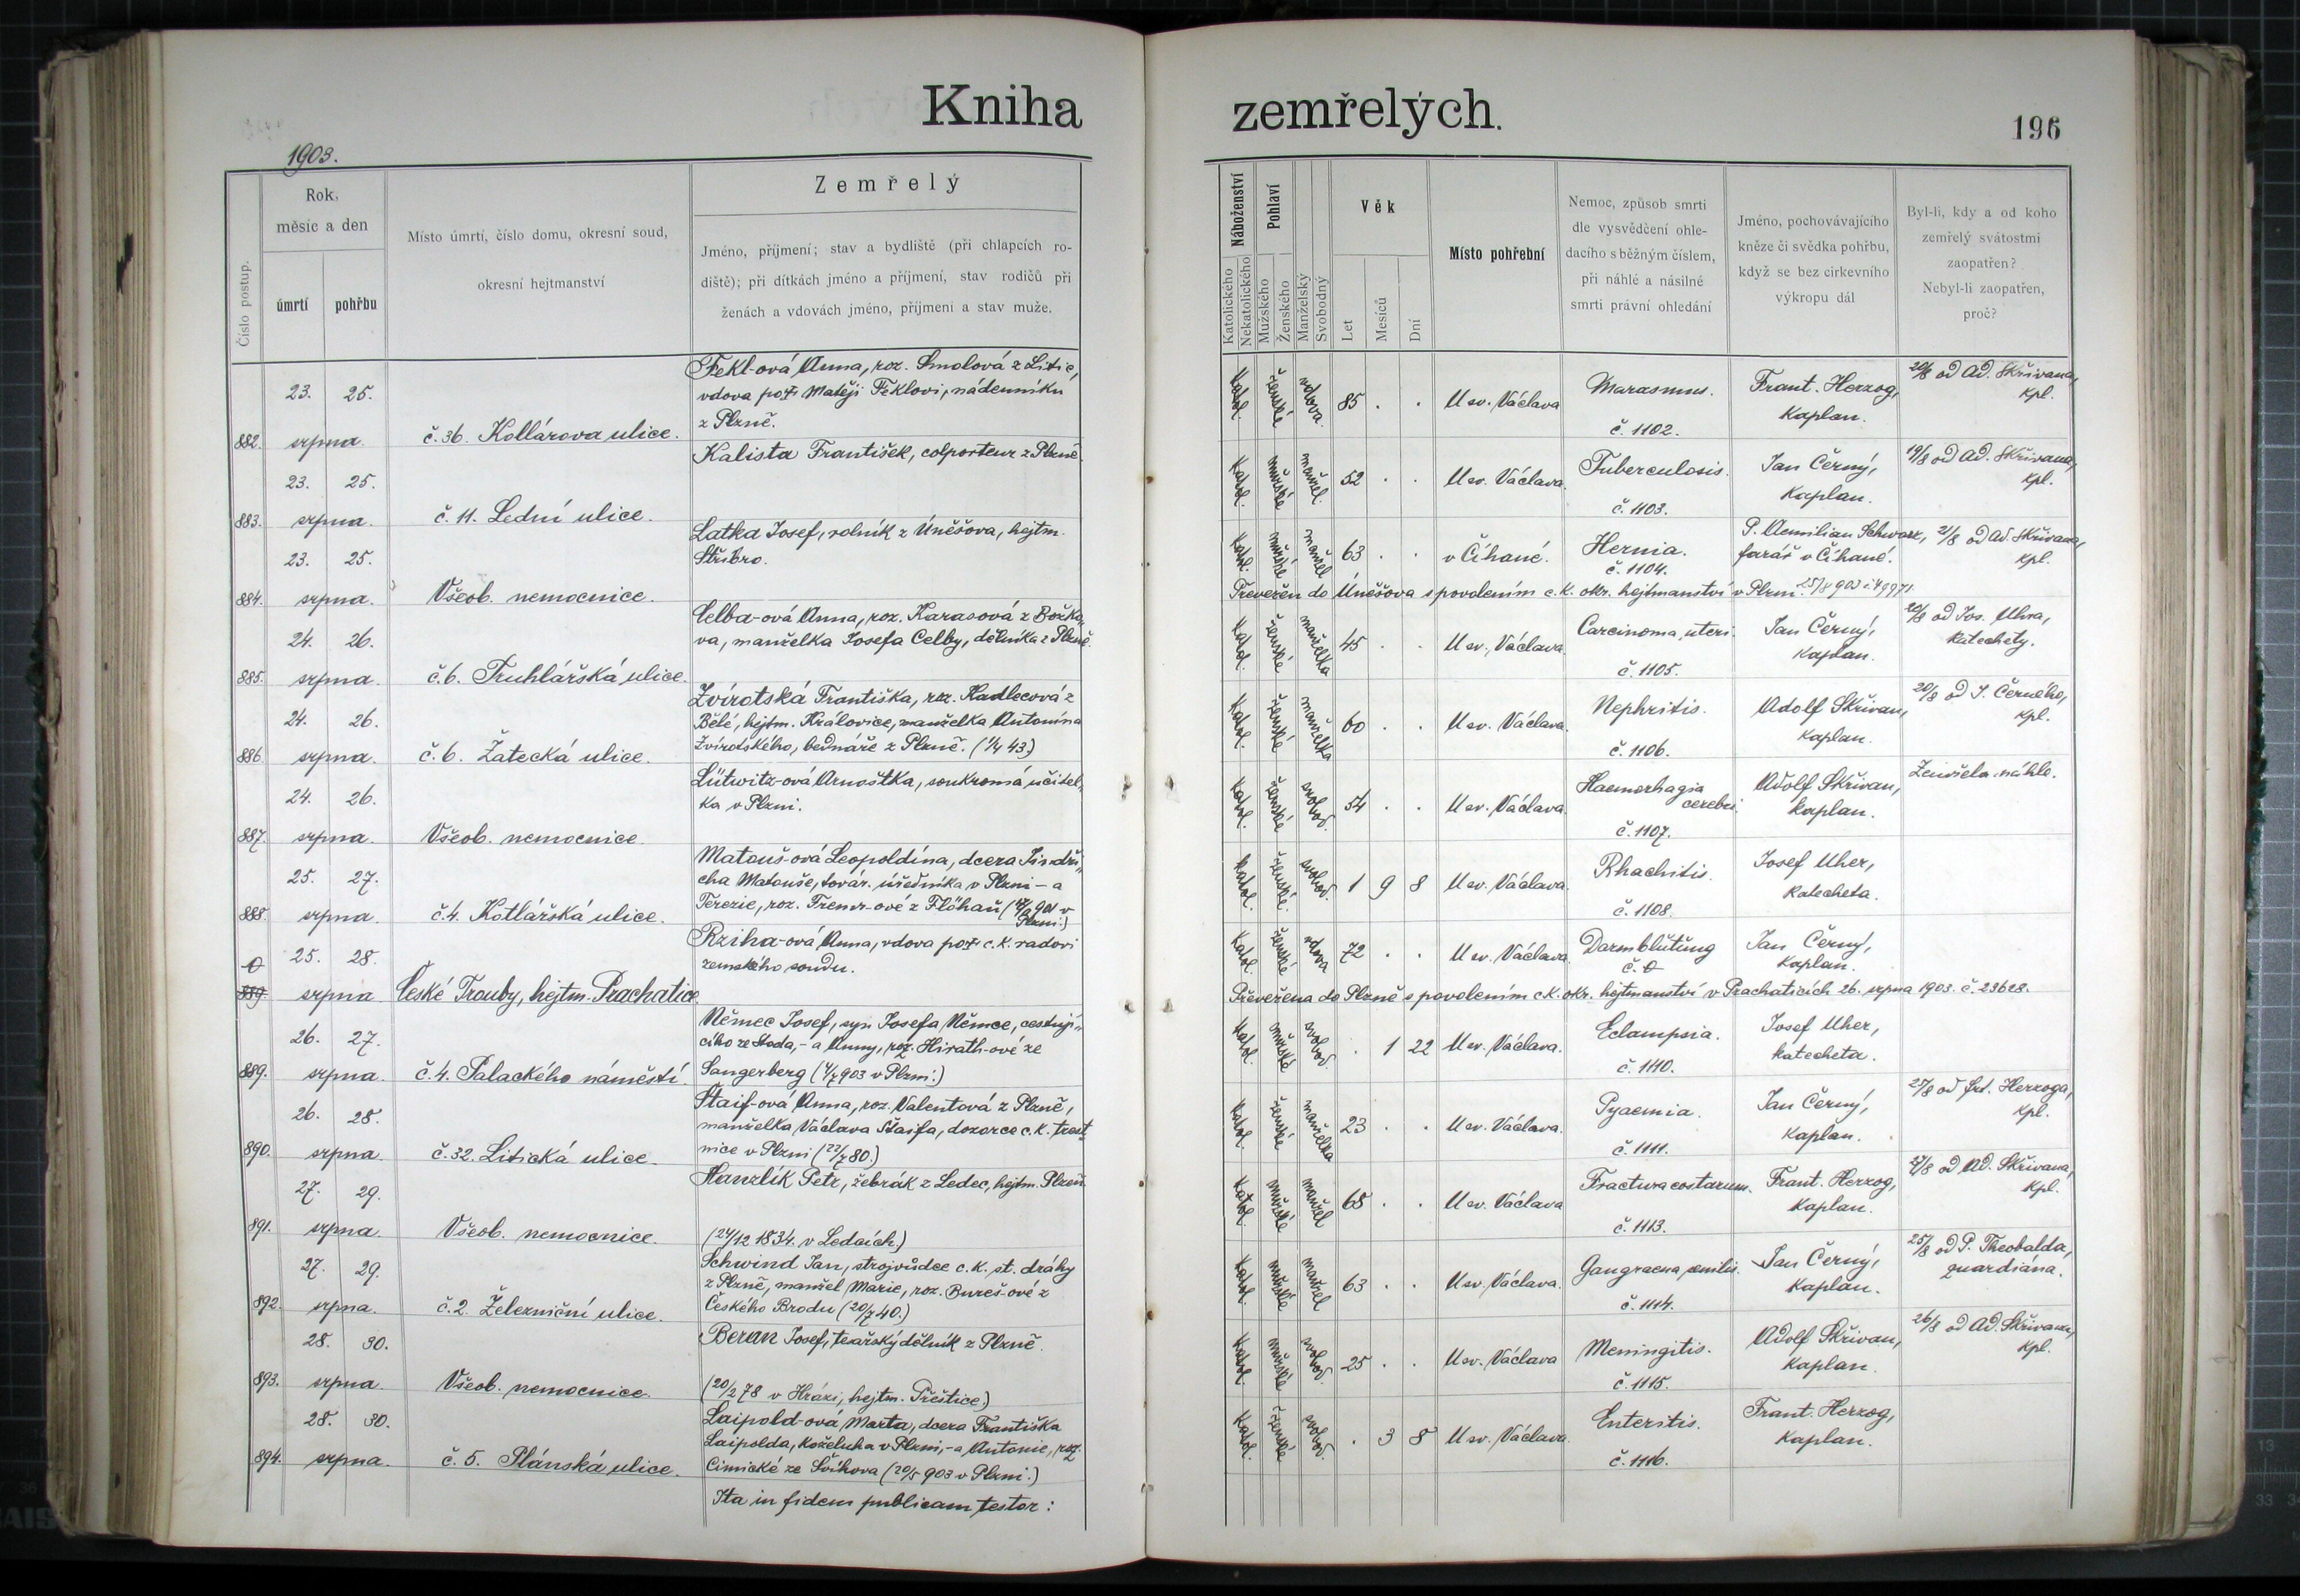 Kniha
zemřelých.
196
1903.
Číslo postup.
Rok,
měsíc a den
úmrtí
pohřbu
Místo úmrtí, číslo domu, okresní soud,
okresní hejtmanství
Zemřelý
Jméno, příjmení; stav a bydliště (při chlapcích ro-
diště); při dítkách jméno a příjmení, stav rodičů při
ženách a vdovách jméno, příjmení a stav muže.
Náboženství
Katolického
Nekatolického
Pohlaví
Mužského
Ženského
Manželský
Svobodný
Věk
Let
Mesíců
Dní
Místo pohřební
Nemoc, způsob smrti
dle vysvědčení ohle-
dacího s běžným číslem,
při náhlé a násilné
smrti právní ohledání
Jméno, pochovávajícího
kněze či svědka pohřbu,
když se bez církevního
výkropu dál
Byl-li, kdy a od koho
zemřelý svátostmi
zaopatřen?
Nebyl-li zaopatřen,
proč?
882. 23. srpna. 25. č. 36. Kollárova ulice.
Fekl-ová Anna, roz. Smolová z Litic,
vdova po † Matěji Feklovi, nádenníku
z Plzně.
Katol. ženské vdova 85 . . U sv. Václava Marasmus. č. 1102. Frant. Herzog, Kaplan. 20/8 od Ad. Skřivana, kpl.
883. 23. srpna. 25. č. 11. Lední ulice.
Kalista František, colporteur z Plzně.
Katol. mužské manžel. 52 . . U sv. Václava. Tuberculosis. č. 1103. Jan Černý, Kaplan. 19/8 od Ad. Skřivana, kpl.
884. 23. srpna. 25. Všeob. nemocnice.
Latka Josef, rolník z Úněšova, hejtm.
Stříbro.
Katol. mužské manžel 63 . . v Číhané. Hernia. č. 1104. P. Aemilian Schwarz, farář v Číhané. 21/8 od Ad. Skřivana, kpl.
Převežen do Úněšova s povolením c. k. okr. hejtmanství v Plzni 25/8 903
885. 24. srpna. 26. č. 6. Truhlářská ulice.
Celba-ová Anna, roz. Karasová z Božko-
va, manželka Josefa Celby, dělníka z Plzně.
Katol. ženské manželka 45 . . U sv. Václava. Carcinoma uteri. č. 1105. Jan Černý, Kaplan. 20/8 od Jos. Uhra, katechety.
886. 24. srpna. 26. č. 6. Žatecká ulice.
Zvírotská Františka, roz. Hadlecová z
Bělé, hejtm. Kralovice, manželka Antonína
Zvírotského, bednáře z Plzně. (1/4 43.)
Katol. ženské manželka 60 . . U sv. Václava. Nephritis. č. 1106. Adolf Skřivan, Kaplan. 20/8 od J. Černého, kpl.
887. 24. srpna. 26. Všeob. nemocnice.
Lütwitz-ová Arnoštka, soukromá učitel-
ka v Plzni.
Katol. ženské svobod. 54 . . U sv. Václava. Haemorhagia cerebri. č. 1107. Adolf Skřivan, Kaplan. Zemřela náhle.
888. 25. srpna. 27. č. 4. Kotlářská ulice.
Matouš-ová Leopoldína, dcera Jindři-
cha Matouše, továr. úředníka v Plzni – a
Terezie, roz. Tremr-ové z Flöhau ( 901 v
Plzni.)
Katol. ženské svobod. 1 9 8 U sv. Václava. Rhachitis. č. 1108. Josef Uher, Katecheta.
0 889 25. srpna 28. České Trouby, hejtm. Prachatice
Rziha-ová Anna, vdova po † c. k. radovi
zemského soudu.
Katol. ženské vdova 72 . . U sv. Václava. Darmblutung č. 0 Jan Černý, Kaplan.
Převežena do Plzně s povolením c. k. okr. hejtmanství v Prachaticích 26. srpna 1903. č. 23628.
889. 26. srpna. 27. č. 4. Palackého náměstí.
Němec Josef, syn Josefa Němce, cestují-
cího ze Stoda, – a Anny, roz. Hirath-ové ze
Sangerberg (4/7 903 v Plzni.)
Katol. mužské svobod. . 1 22 U sv. Václava. Eclampsia. č. 1110. Josef Uher, katecheta.
890. 26. srpna. 28. č. 32. Litická ulice.
Staif-ová Anna, roz. Valentová z Plzně,
manželka Václava Štaifa, dozorce c. k. trest-
nice v Plzni (22/7 80.)
Katol. ženské manželka 23 . . U sv. Václava. Pyaemia. č. 1111. Jan Černý, Kaplan. 25/8 od Frt. Herzoga, kpl.
891. 27. srpna. 29. Všeob. nemocnice.
Hanzlík Petr, žebrák z Ledec, hejtm. Plzeň.
(24/12 1834. v Ledcích)
Katol. mužské manžel 68 . . U sv. Václava Fractura costarum. č. 1113. Frant. Herzog, Kaplan. 17/8 od Ad. Skřivana, kpl.
892. 27. srpna. 29. č. 2. Železniční ulice.
Schwind Jan, strojvůdce c. k. st. dráhy
z Plzně, manžel Marie, roz. Bureš-ové z
Českého Brodu (20/7 40.)
Katol. mužské manžel 63 . . U sv. Václava. Gangraena senilis. č. 1114. Jan Černý, Kaplan. 25/8 od P. Theobalda, guardiána.
893. 28. srpna. 30. Všeob. nemocnice.
Beran Josef, tesařský dělník z Plzně.
(20/2 78 v Hrázi, hejtm. Přeštice.)
Katol. mužské svobod. 25 . . U sv. Václava Meningitis. č. 1115. Adolf Skřivan, Kaplan. 26/8 od Ad. Skřivana, kpl.
894. 28. srpna. 30. č. 5. Plánská ulice.
Laipold-ová Marta, dcera Františka
Laipolda, koželuha v Plzni, – a Antonie, roz.
Cimické ze Švihova (20/5 903 v Plzni.)
Katol. ženské svobod. . 3 8 U sv. Václava. Enteritis. č. 1116. Frant. Herzog, Kaplan.
Ita in fidem publicam testor: